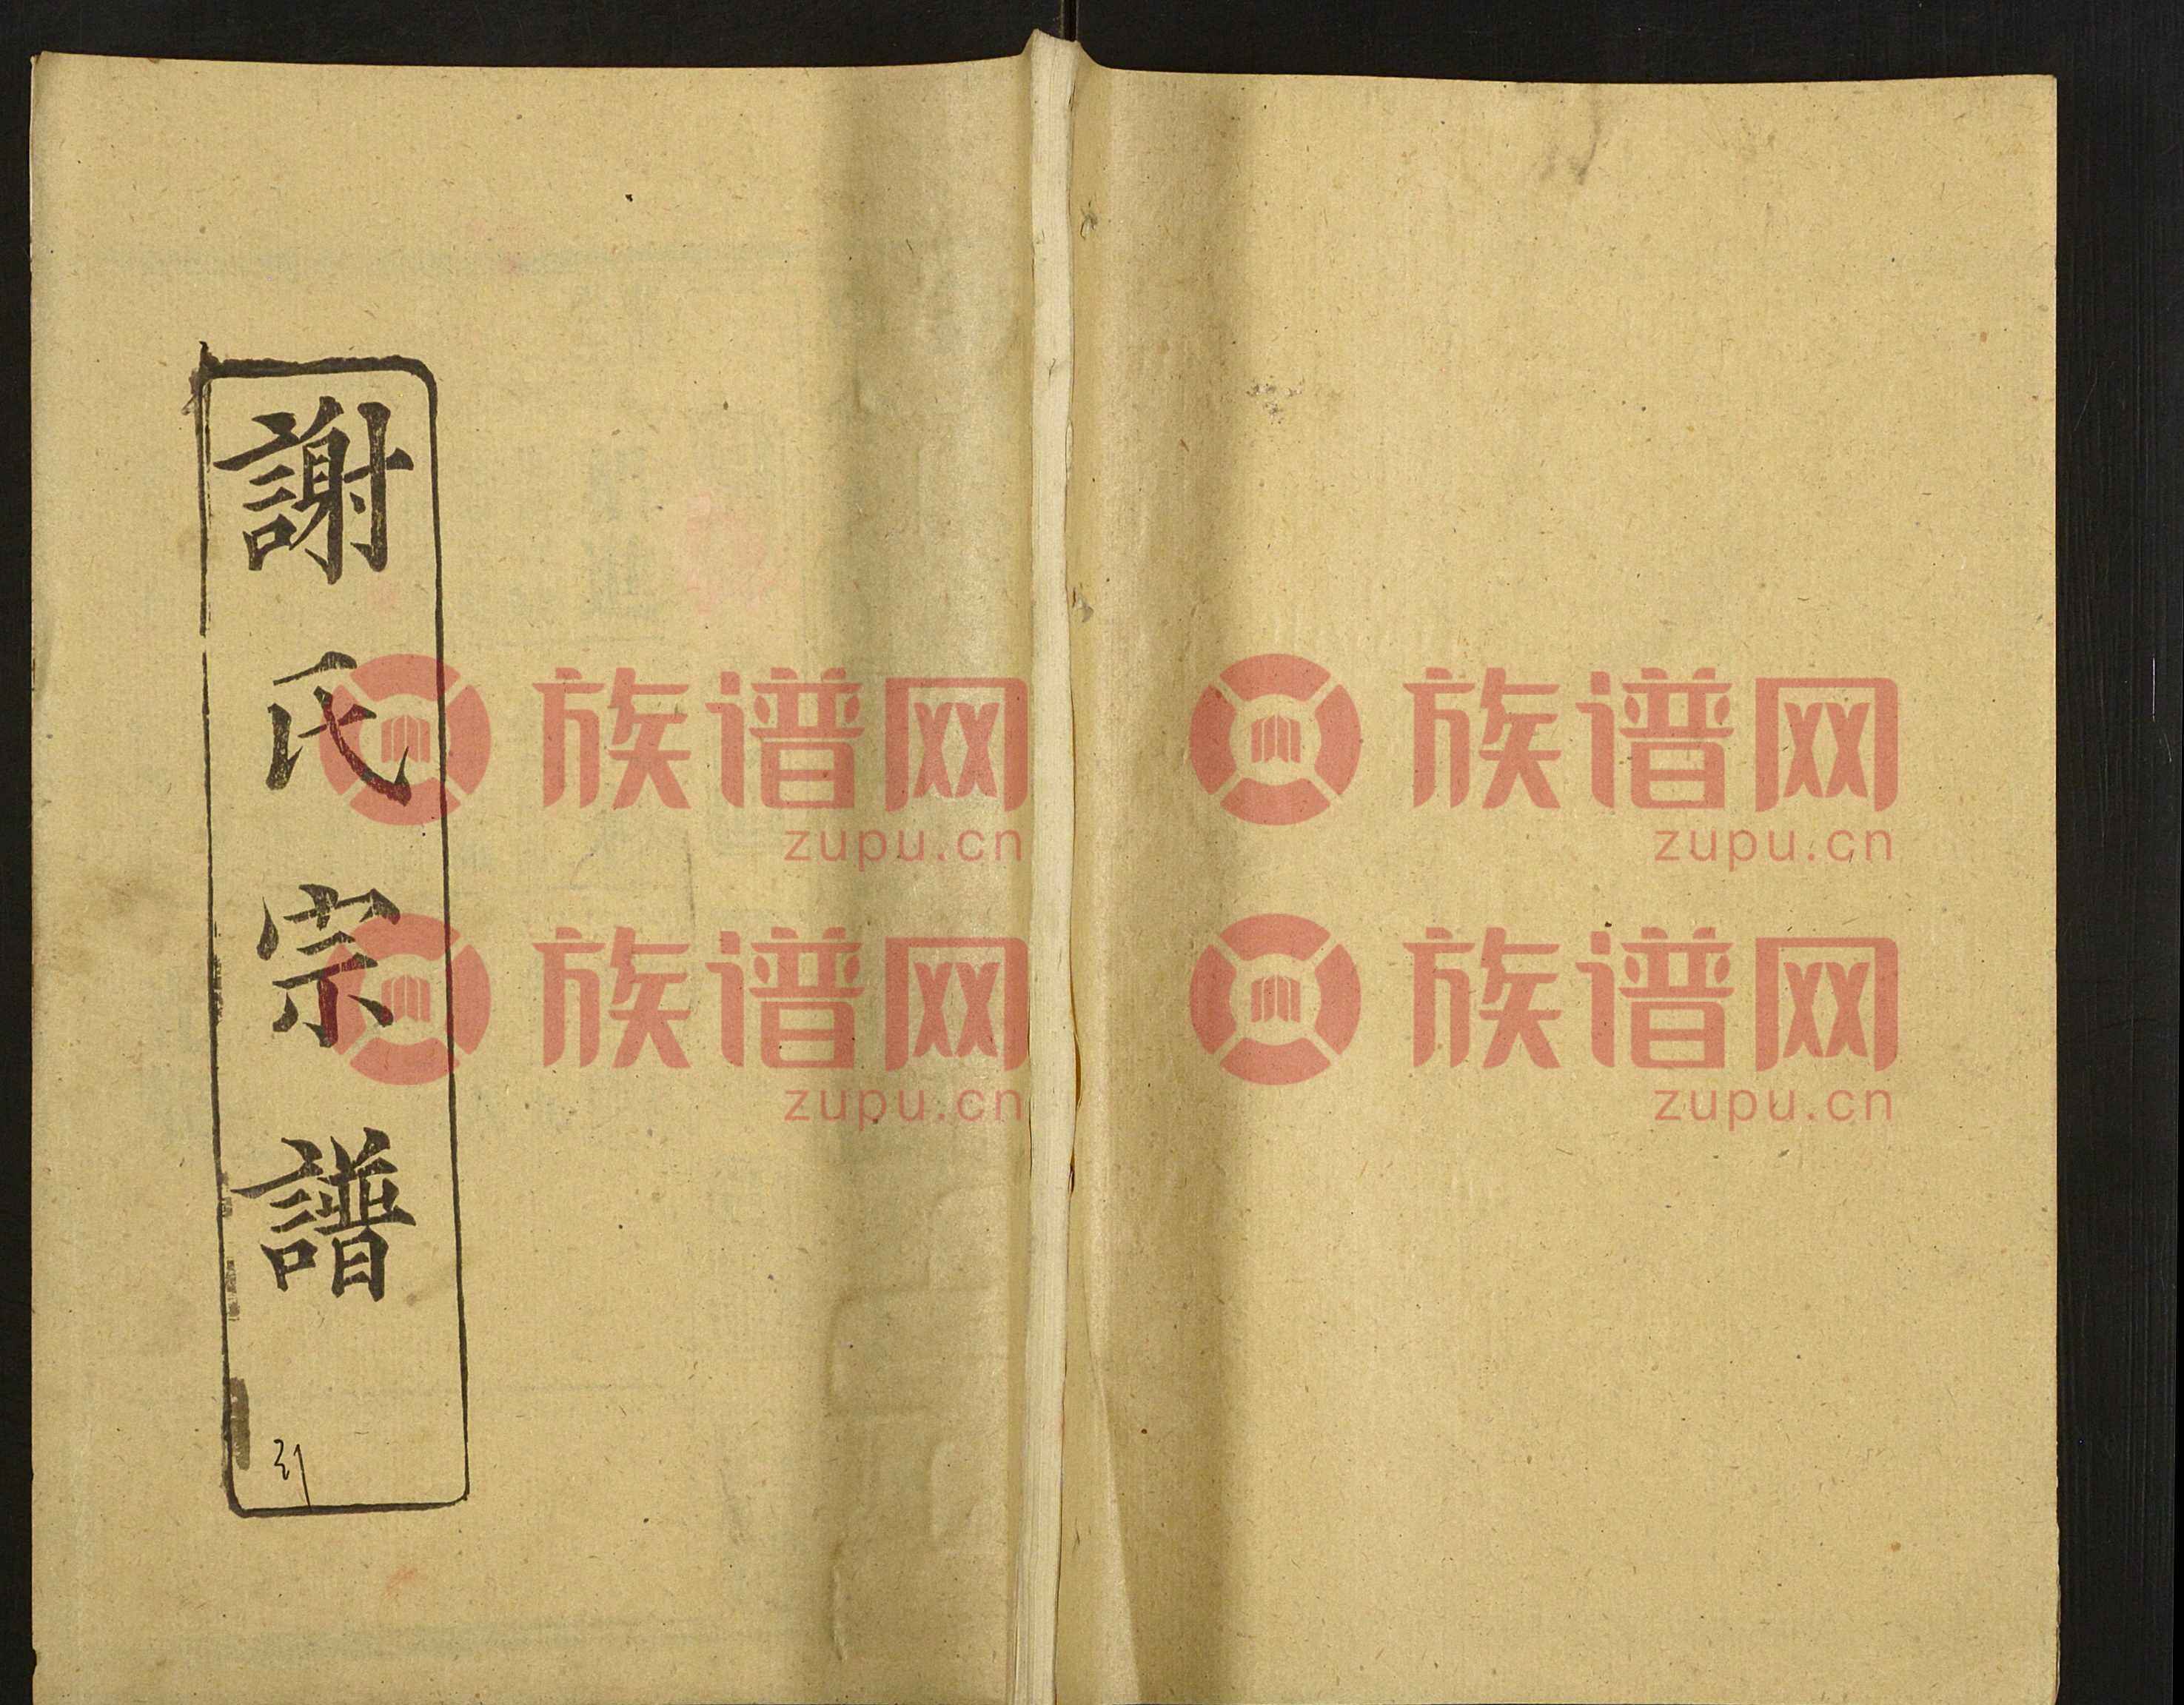 謝氏宗譜
族谱网
zupu.cn
族谱网
zupu.cn
族谱网
zupu.cn
族谱网
zupu.cn